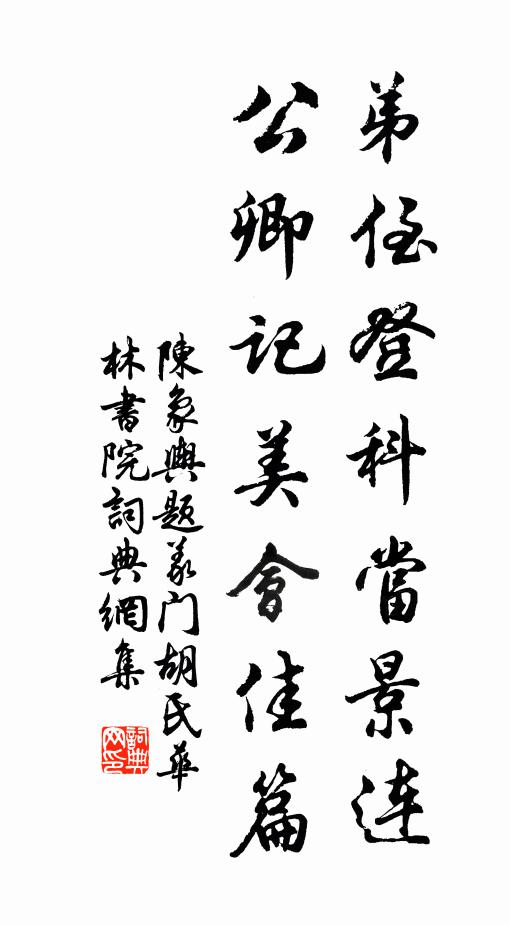 弟侄登科當景連
公卿記美會佳篇
陳象輿題義门胡氏華
林書院詞典網集
詞典网印